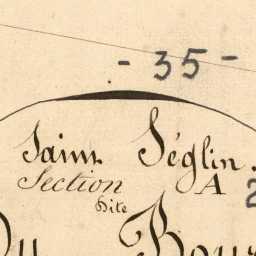 - 35 -
Saint Séglin.
Section A
Dite
Du Bour